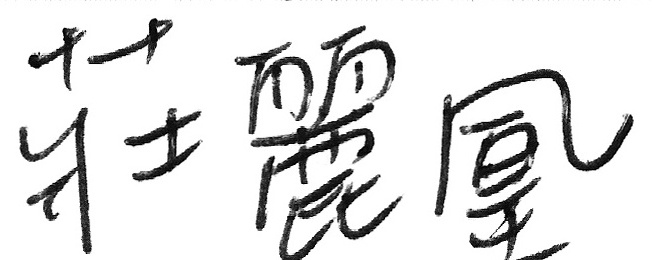 莊麗凰